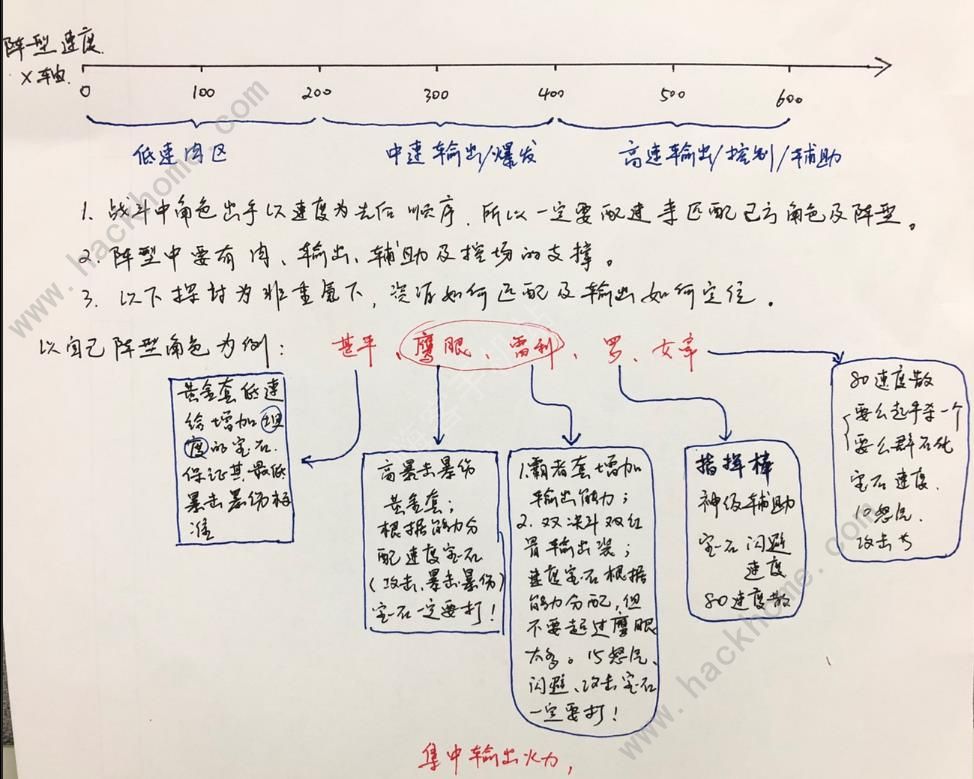 阵型速度
X轴
0 100 200 300 400 500 600
低速肉区 中速输出/爆发 高速输出/控制/辅助
1. 战斗中角色出手以速度为先后顺序，所以一定要配速来匹配己方角色及阵型。
2. 阵型中要有肉、输出、辅助及控场的支撑。
3. 以下探讨为非重氪下，资源如何匹配及输出如何定位。
以自己阵型角色为例：
甚平、鹰眼、雷利、罗、女帝
黄金套低速
给增加
的宝石.
保证其最低
暴击暴伤标
准
高暴击暴伤
黄金套；
根据能力分
配速度宝石
(攻击、暴击暴伤)
宝石一定要打！
1.霸者套增加
输出能力；
2. 双决斗双红
骨输出装；
速度宝石根据
能力分配，但
不要超过鹰眼
太多。15怒气、
闪避、攻击宝石
一定要打！
指挥棒
神级辅助
宝石闪避
速度
80速度散
80速度散
要么起手杀一个
要么群石化
宝石速度.
10怒气.
攻击
集中输出火力，
www.hackhome.com
www.hackhome.com